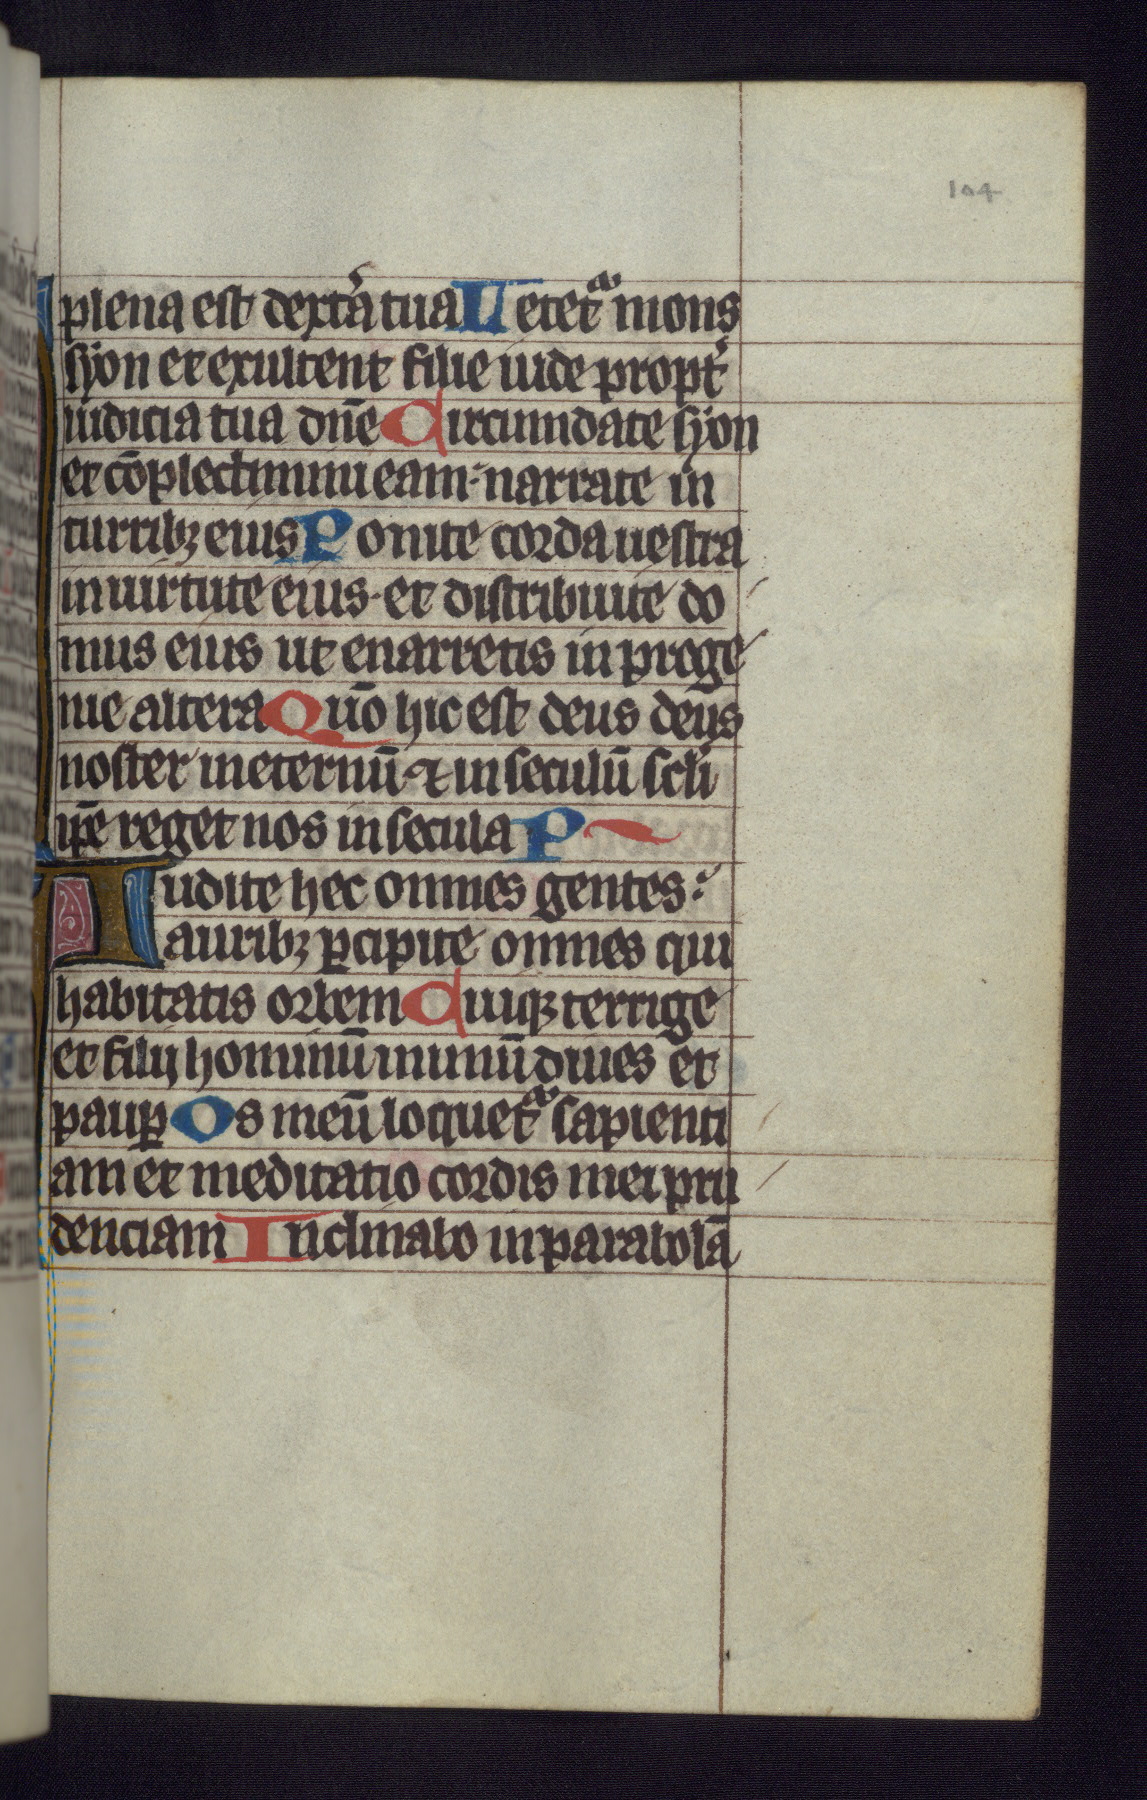 104
plena est dext᷑a tua Letet᷑ mons
syon et exultent filie iude propt᷑
iudicia tua dn̄e Circumdate syon
et cōplectimini eam· narrate in
turribꝫ eius Ponite corda uestra
in uirtute eius· et distribuite do
mus eius ut enarretis in proge
nie altera Qūo hic est deus deus
noster in eternū ⁊ in seculū scl̄i
ip̄e reget nos in secula P
Audite hec omnes gentes:
auribꝫ ꝑcipite omnes qui
habitatis orbem Quiqꝫ terrige
et filij hominū in unū diues et
pauꝑ Os meū loquet᷑ sapienti
am et meditatio cordis mei pru
denciam Inclinabo in parabolā